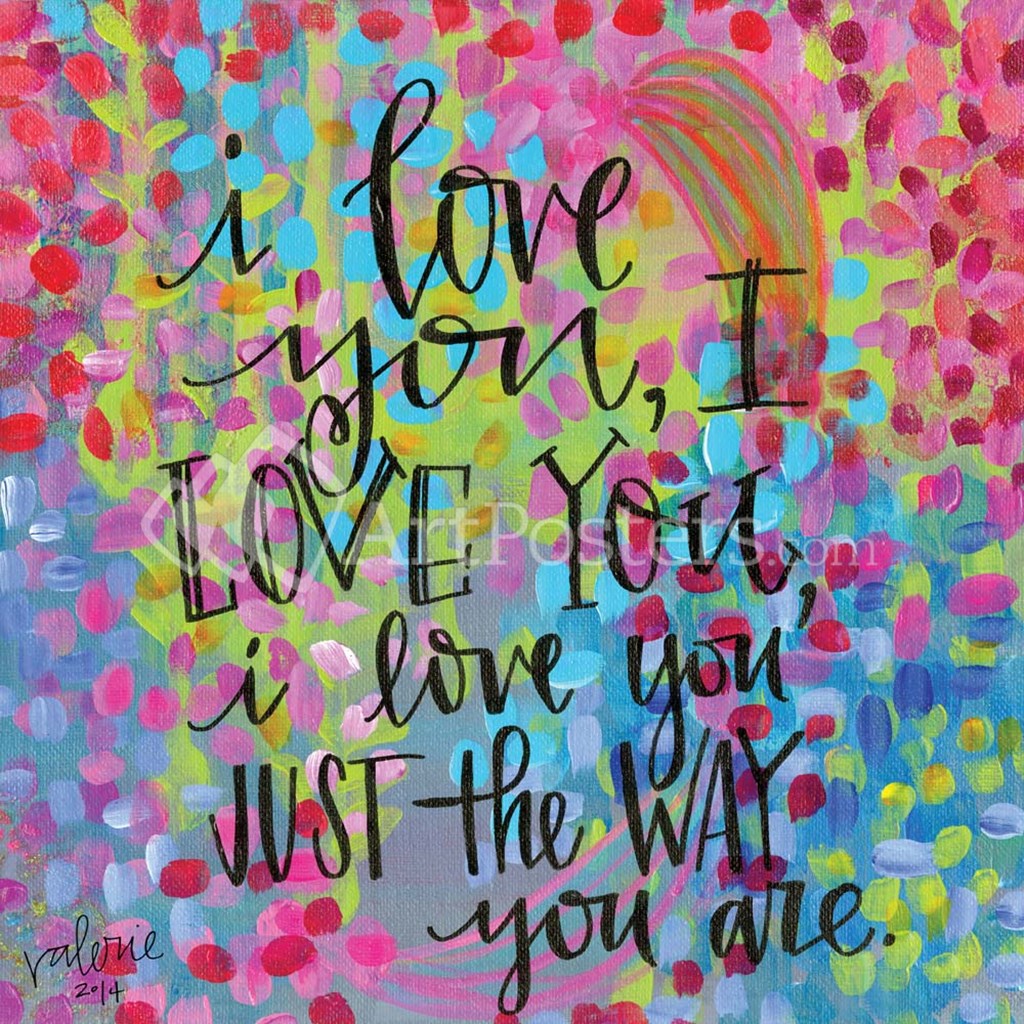 i love
you, I
LOVE You,
i love you
JUST the WAY
you are.
ArtPosters.com
valerie
2014